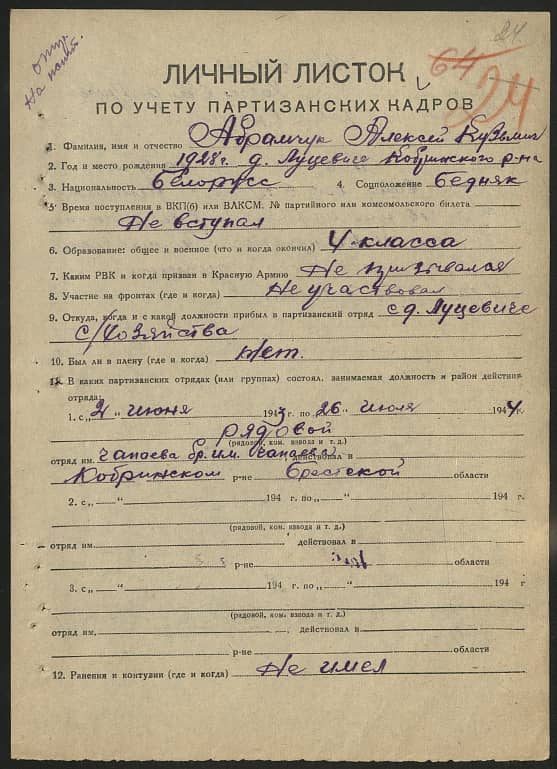 24.
64
24
ЛИЧНЫЙ ЛИСТОК
ПО УЧЕТУ ПАРТИЗАНСКИХ КАДРОВ
1. Фамилия, имя и отчество Абрамчук Алексей Кузьмич
2. Год и место рождения 1928 г. д. Луцевиче Кобринского р-на
3. Национальность белорусс 4. Соцположение бедняк
5. Время поступления в ВКП(б) или ВЛКСМ. № партийного или комсомольского билета
Не вступал
6. Образование: общее и военное (что и когда окончил) 4 класса
7. Каким РВК и когда призван в Красную Армию Не призывался
8. Участие на фронтах (где и когда) Не участвовал
9. Откуда, когда и с какой должности прибыл в партизанский отряд с д. Луцевиче
с/хозяйства
10. Был ли в плену (где и когда) Нет.
11. В каких партизанских отрядах (или группах) состоял, занимаемая должность и район действия
отряда:
1. с „2„ июня 1943 г. по 26 „ июля 1944 г.
рядовой
(рядовой, ком. взвода и т. д.)
отряд им. Чапаева бр. им. Чапаева действовал в
Кобринском р-не Брестской области
2. с „ “ 194 г. по „ “ 194 г.
(рядовой, ком. взвода и т. д.)
отряд им. , действовал в
р-не области
3. с „ “ 194 г. по „ “ 194 г
(рядовой, ком. взвода и т. д.)
отряд им. , действовал в
р-не области
12. Ранения и контузии (где и когда) Не имел